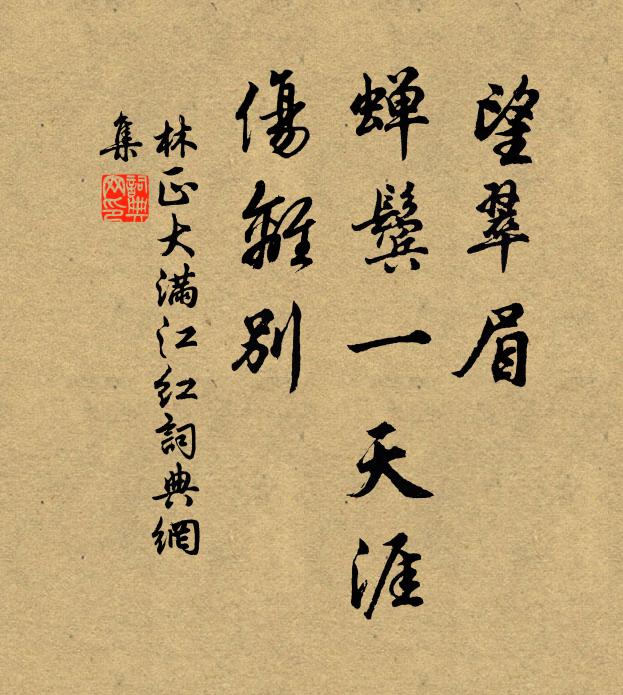 望翠眉
蝉鬓一天涯
傷離别
林正大满江红詞典網
集
詞典网印